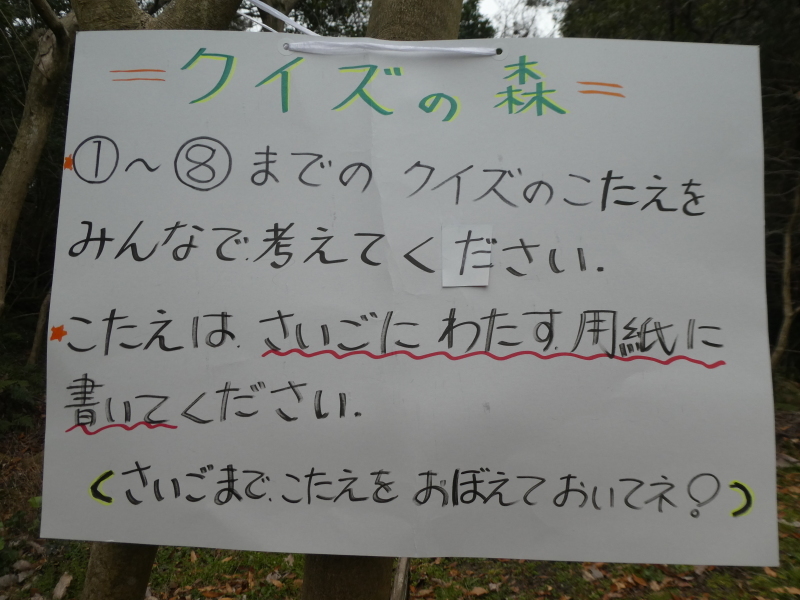 =クイズの森=
①～⑧までの クイズのこたえを
みんなで.考えてください.
こたえは.さいごに わたす.用紙に
書いてください.
(さいごまで.こたえを おぼえておいてネ!)